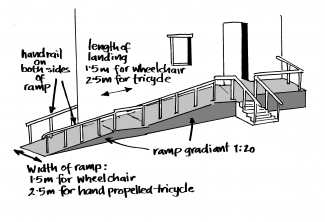 handrail
on
both sides
of
ramp
length of
landing
1·5m for wheelchair
2·5m for tricycle
ramp gradiant 1:20
Width of ramp:
1·5m for wheelchair
2·5m for hand propelled tricycle